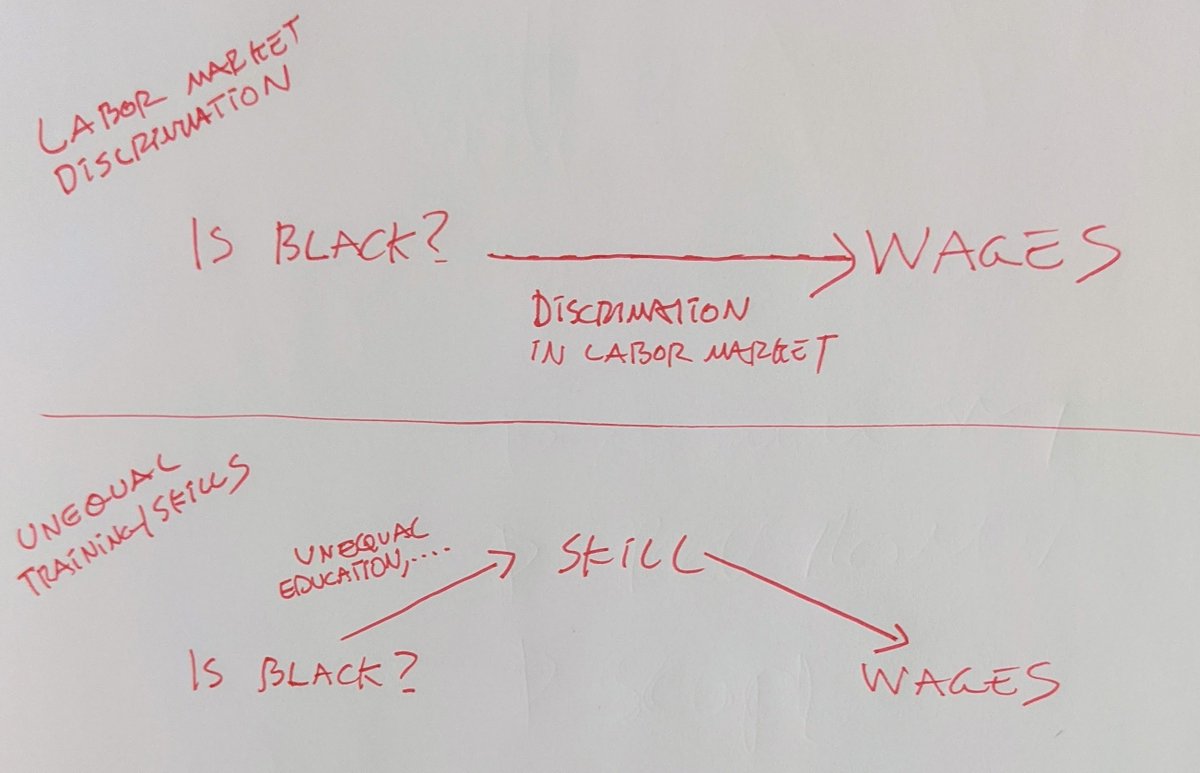 LABOR MARKET
DISCRIMINATION
IS BLACK?
WAGES
DISCRIMATION
IN LABOR MARKET
UNEQUAL
TRAINING/SKILLS
UNEQUAL
EDUCATION,....
SKILL
IS BLACK?
WAGES